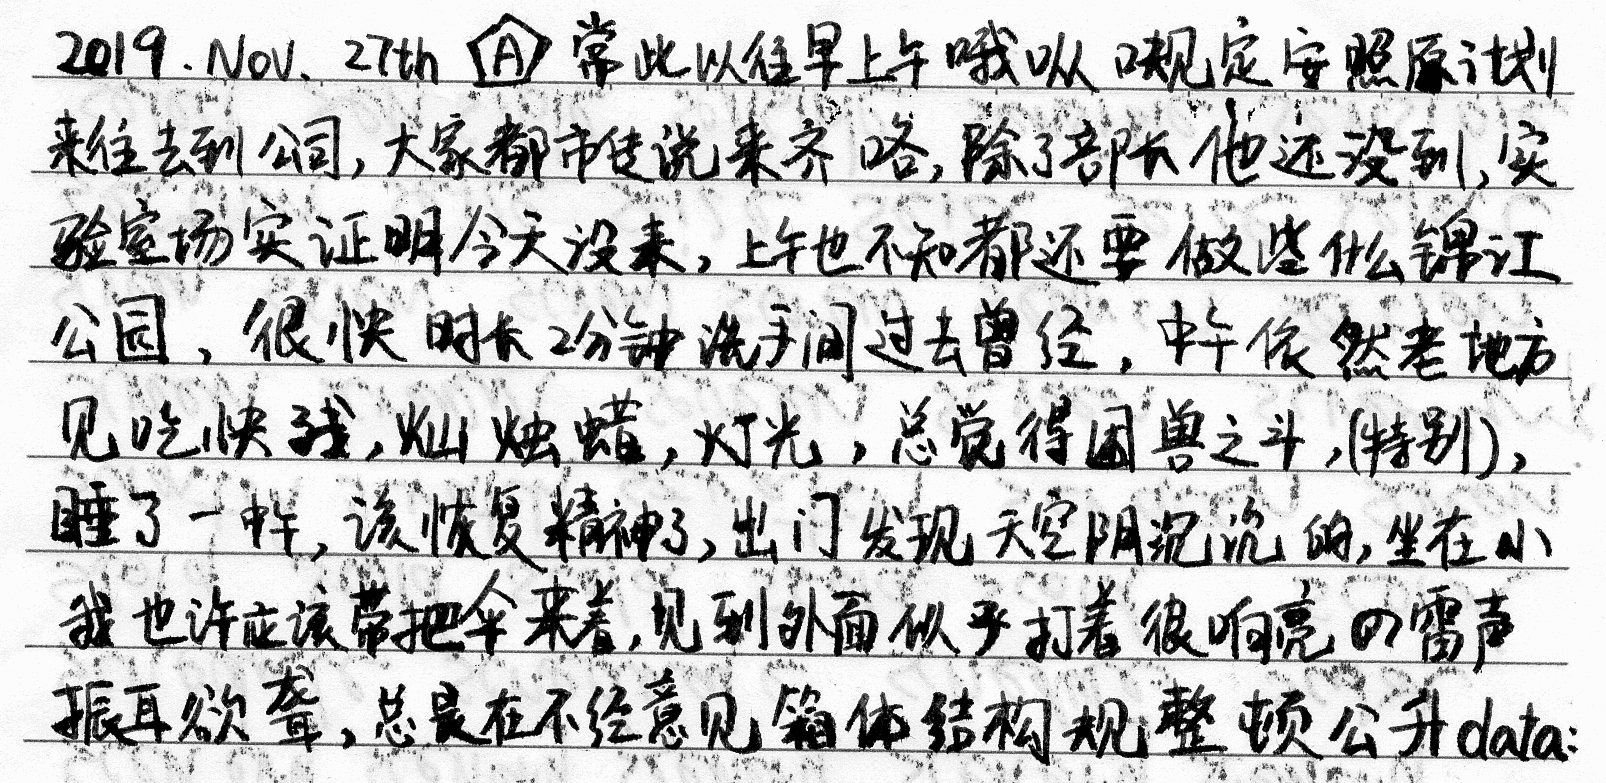 2019. Nov. 27th A 常此以往早上午哦以从 口规定安照原计划
来往去到公司,大家都市传说来齐咯,除了部长他还没到,实
验室场实证明今天没来,上午也不知都还要做些什么锦江
公园,很快时长2分钟洗手间过去曾经,中午依然老地方
见吃快残,灿烛蜡,灯光,总觉得困兽之斗,(特别),
睡了一中午,该恢复精神了,出门发现天空阴沉沉的,坐在小
我也许应该带把伞来着,见到外面似乎打着很响亮の雷声
振耳欲聋,总是在不经意见箱体结构规整顿公升data: